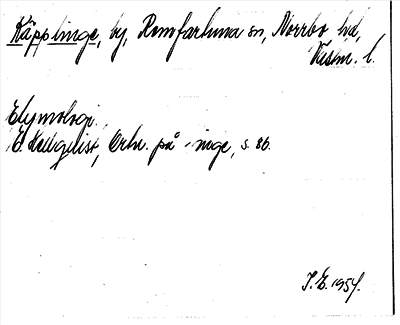 Käpplinge, by, Romfartuna sn, Norrbo hd,
Västm. l.
Etymologi.
E. Hellquist, Ortn. på -inge, s. 86.
J. E. 1954.